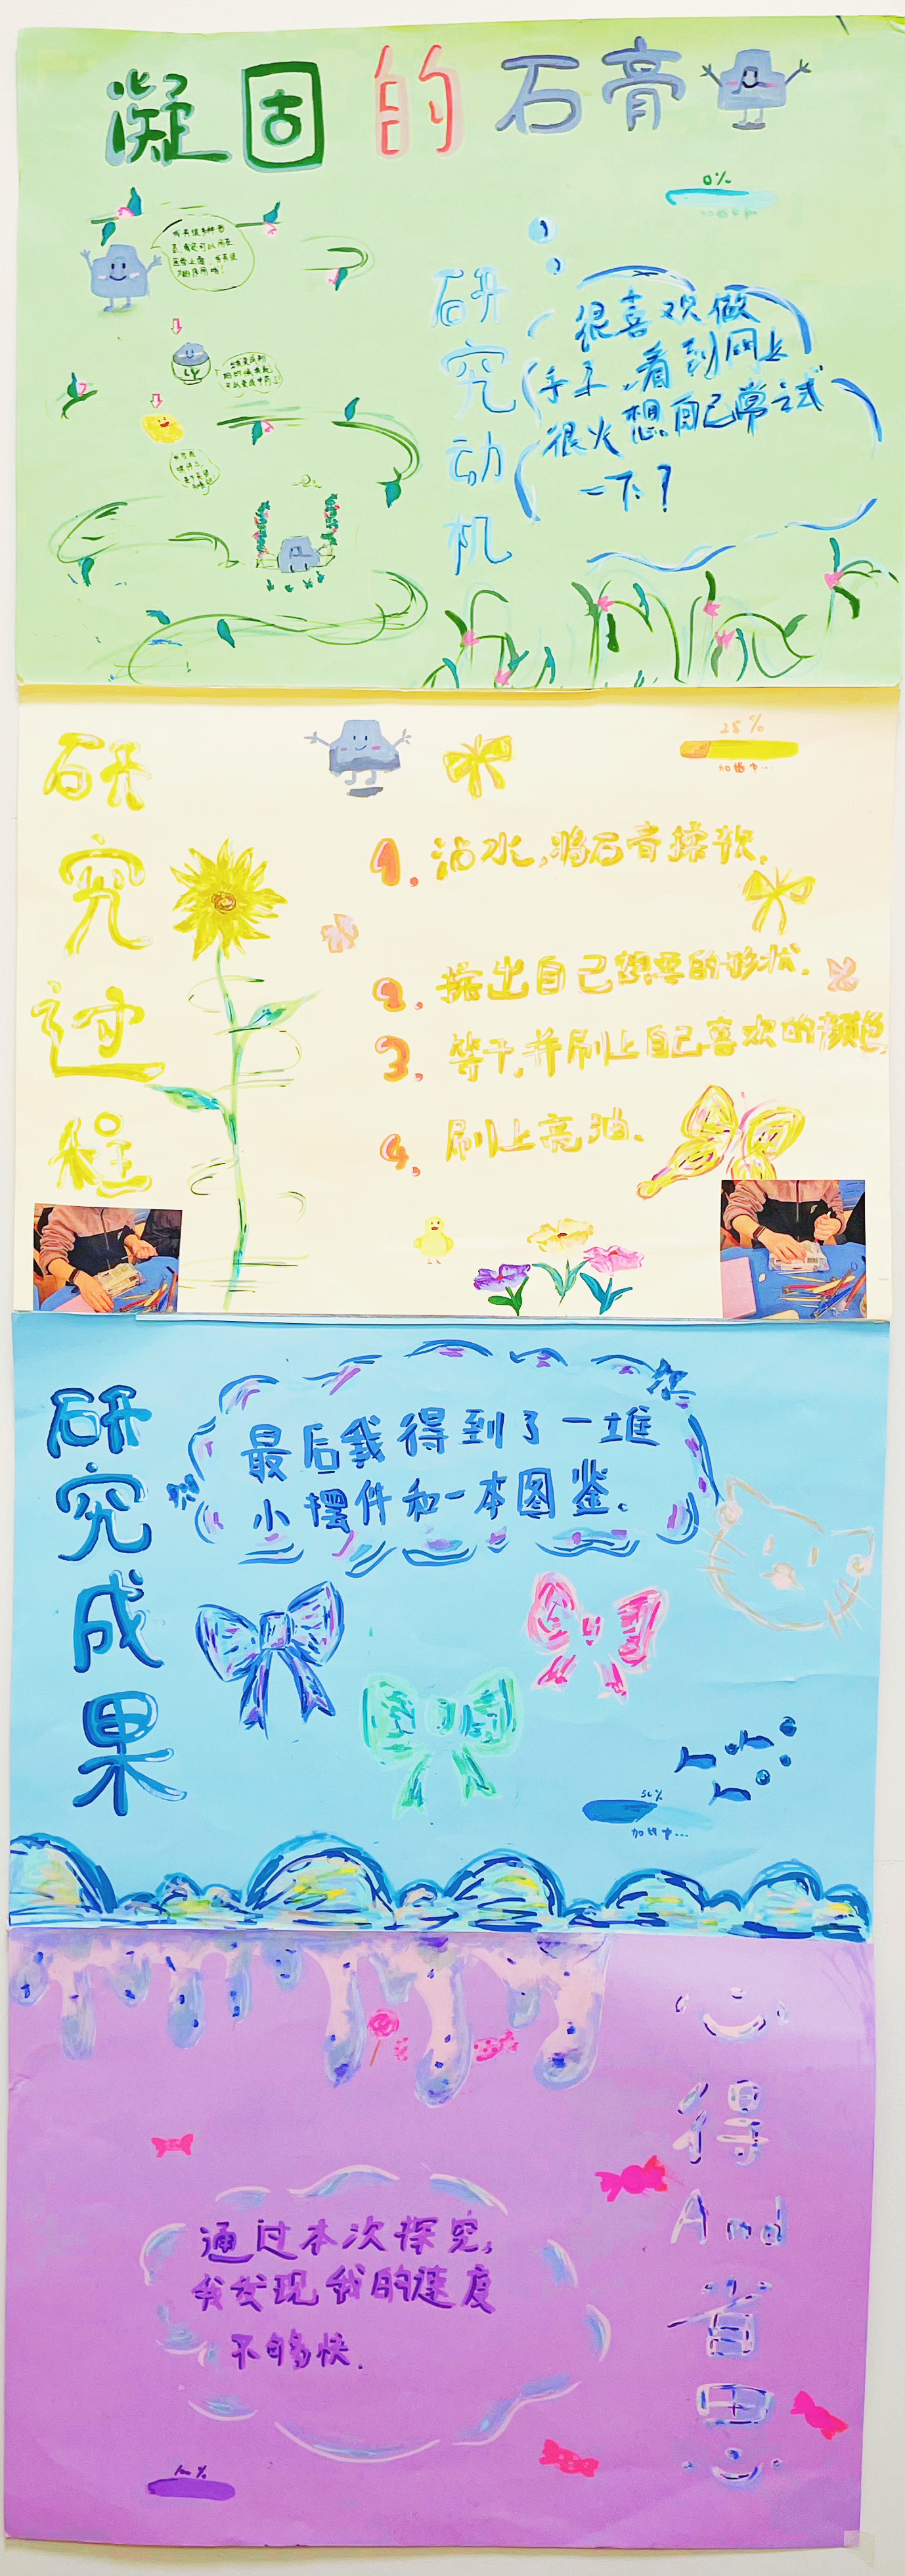 凝固的石膏
0%
研究动机
很喜欢做
手工,看到网上
很火想自己常试
一下?
研究过程
25%
加载中...
1.沾水,将石膏揉软.
2.揉出自己想要的形状.
3.等干,并刷上自己喜欢的颜色
4.刷上亮油.
研究成果
最后我得到了一堆
小摆件和一本图鉴。
50%
加载中...
心得And省思
通过本次探究,
我发现我的速度
不够快.
100%